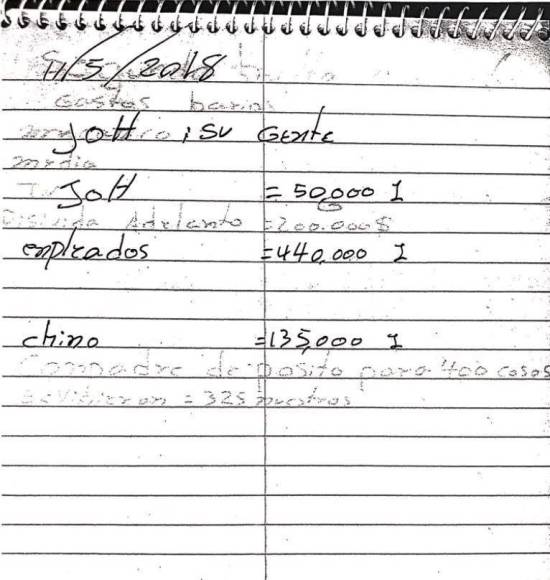 11/5/2018
Gastos barios
JOH ; SU GENTE
media
JOH = 50,000 I
Adelanto = 200.000$
empleados = 440.000 I
chino = 135,000 I
Comadre deposito para 400 cosos
= 325 nuestros